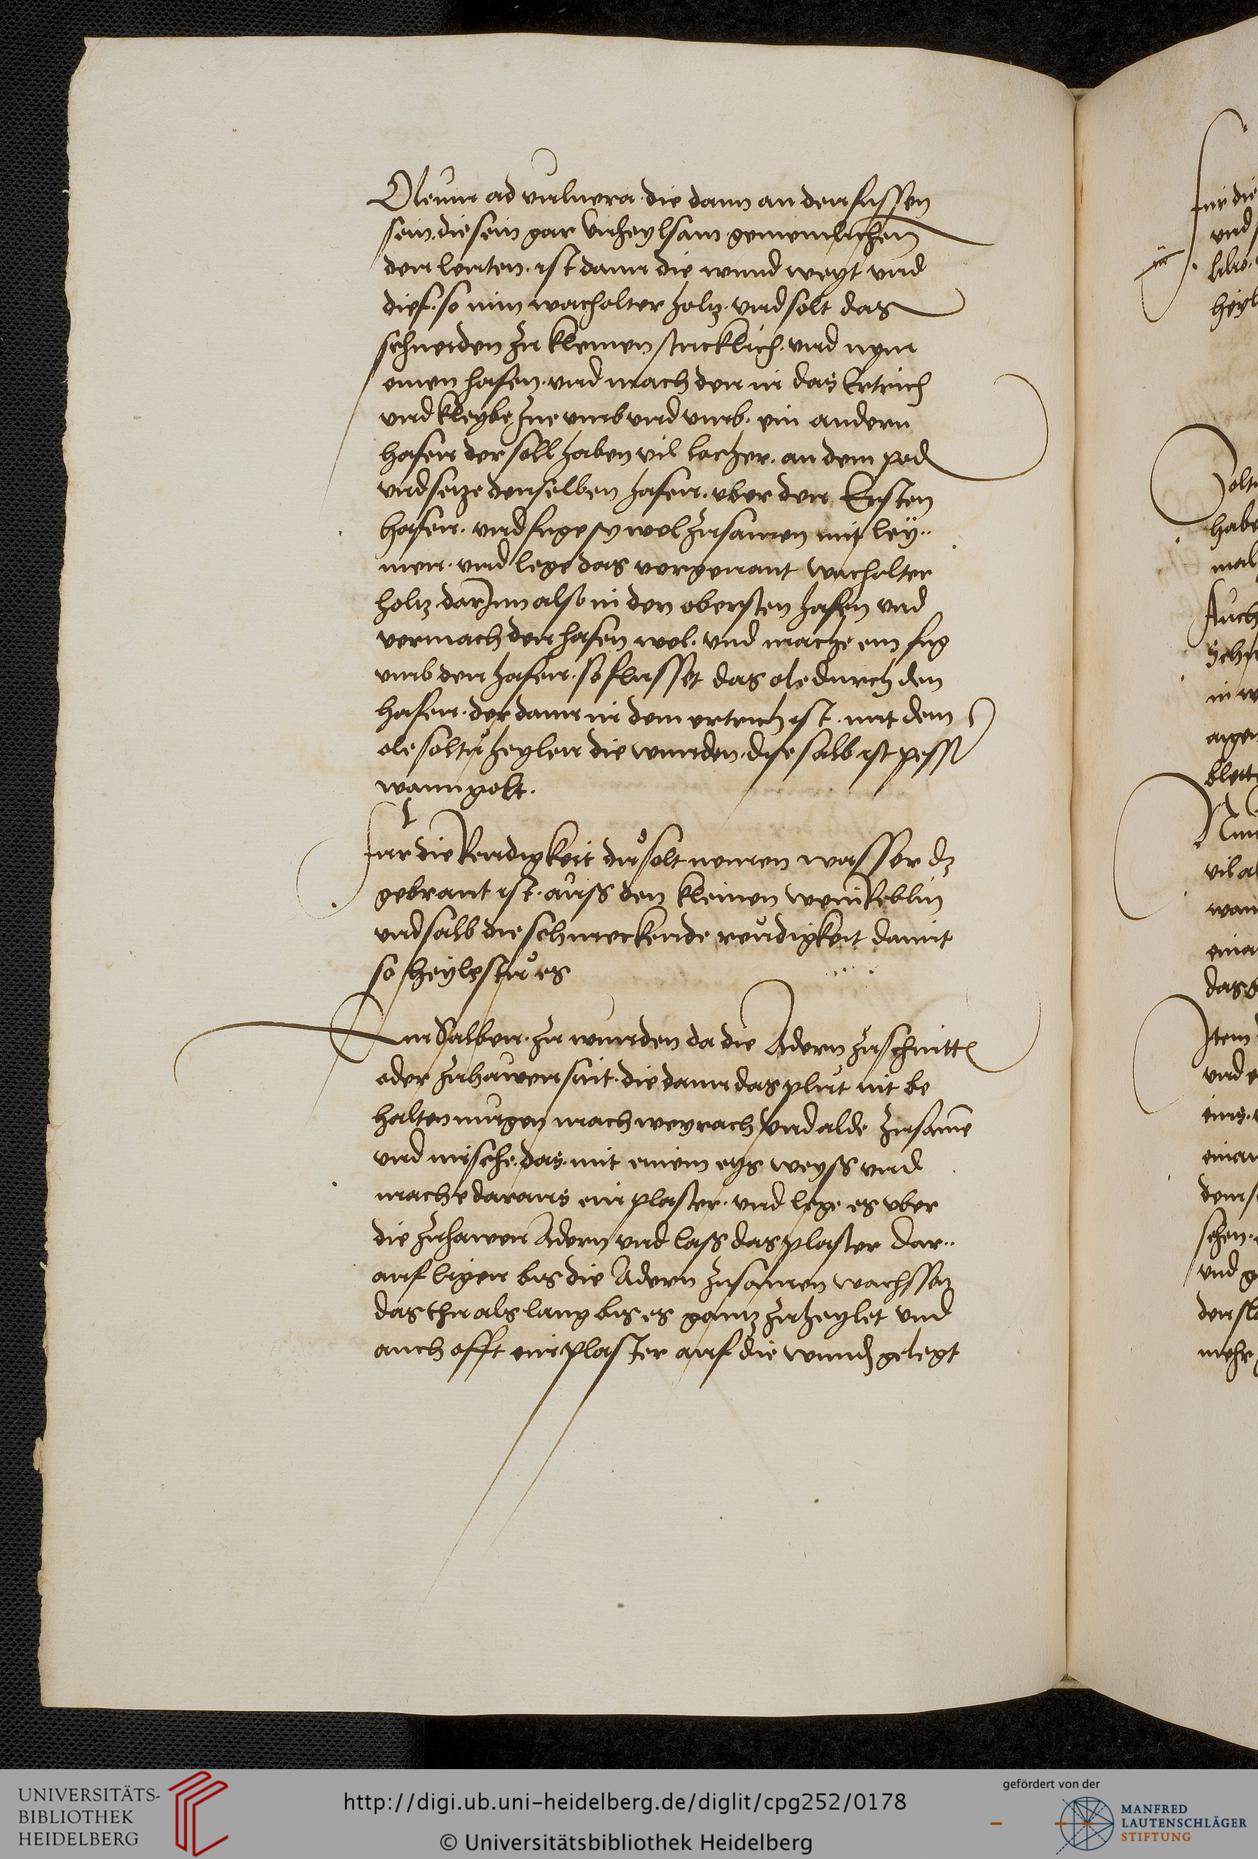 Oleum ad vulnera die dann an den fussen
sein. die sein gar vnheylsam gemeinlichen
den leuten. ist dann die wund weyt vnd
dief. so nim wacholter holtz. vnd solt das
schneiden zu kleinen stucklich. vnd nym
einen hafen. vnd mach den in das Ertrich
vnd kleybe Jne vmb vnd vmb. ein andern
hafen der soll haben vil locher. an dem pod
vnd setze denselben hafen. vber den Ersten
hafen. vnd fuge sy wol zusamen mit ley..
men. vnd lege das vorgenant wacholter
holtz. darJnn also in den obersten hafen vnd
vermach den hafen wol. vnd mache ein fug
vmb den hafen. so flusset das ole durch den
hafen. der dann in dem ertrich ist. mit dem
ole soltu heylen die wunden. dise salb ist pesser
wann golt.
Fur die Reudigkeit du solt nemen wasser dz
gebrant ist. auss den kleinen weinReblin
vnd salb die schmeckende reudigkeit damit
so heylestu es
Ein Salben. zu wunden da die Adern zuschnitten
oder zuhawen sint. die dann das plut nit be
halten mugen mach weyrach vnd alde zusamē
vnd mische. das. mit einem eys weyss vnd
mache daraus ein plaster. vnd lege es vber
die zuhawen Adern vnd lass das plaster dar..
auf ligen bis die Adern zusamen wachssen
das thu als lang bis es gantz zuheylet vnd
auch offt ein plaster auf die wund gelegt
fur die
vnd
heyl
haber
mal
Auch
in w
bleit
vil a
wan
eina
das
Item
vnd
eins.
einan
dem
vnd g
mehr
UNIVERSITÄTS-
BIBLIOTHEK
HEIDELBERG
http://digi.ub.uni-heidelberg.de/diglit/cpg252/0178
© Universitätsbibliothek Heidelberg
gefördert von der
MANFRED
LAUTENSCHLÄGER
STIFTUNG